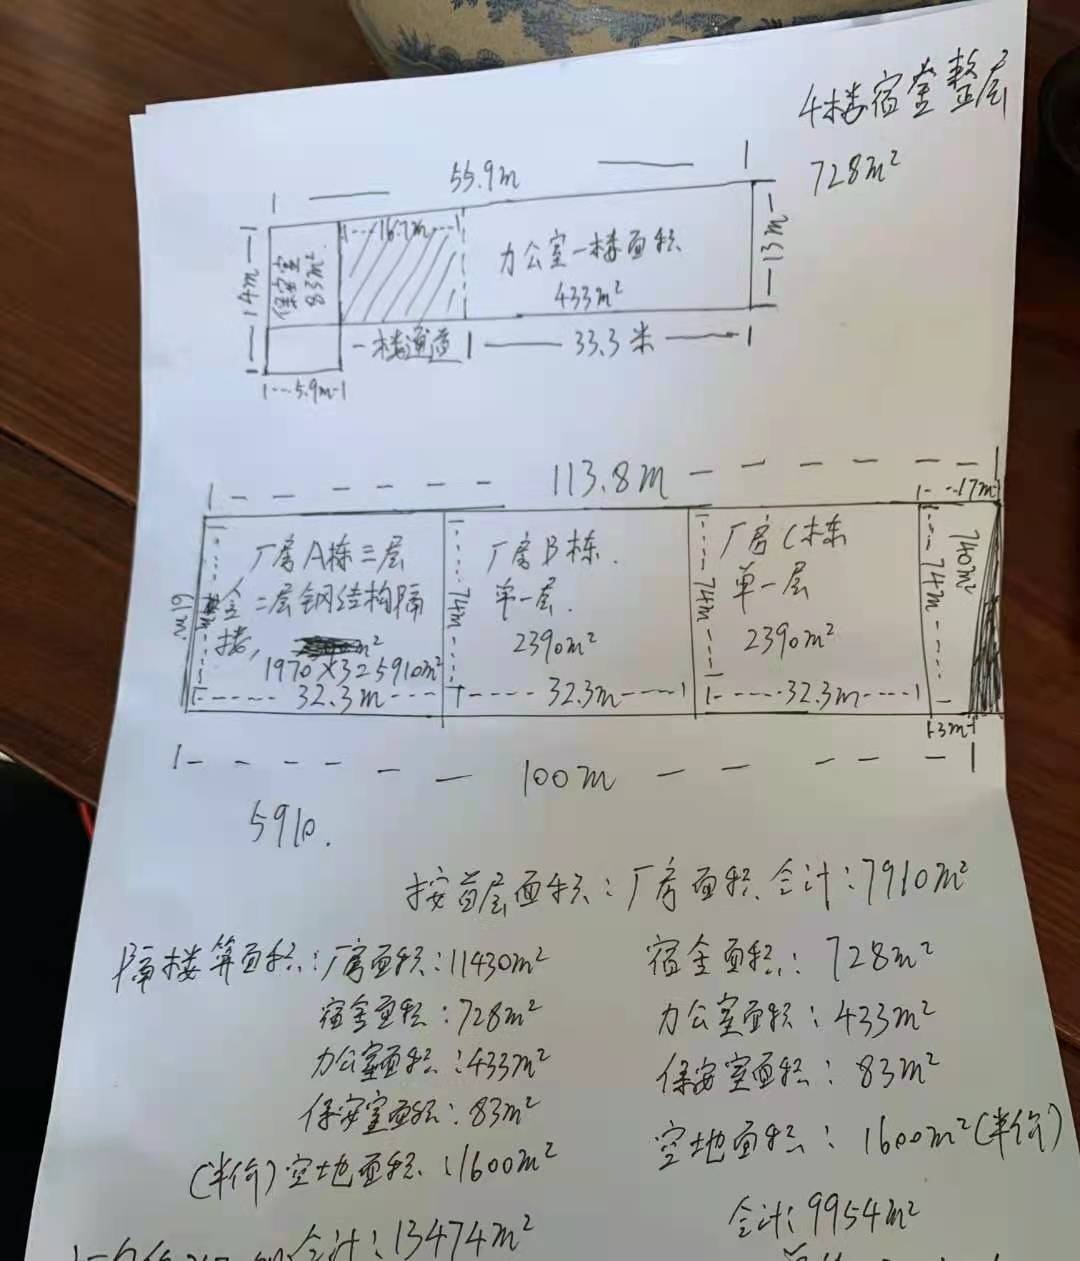 4楼宿舍整层
728m²
55.9m
16.7m
14m
保安室
83m²
办公室一楼面积
433m²
13m
一楼通道
33.3米
5.9m
113.8m
17m
厂房A栋三层
二层钢结构隔
楼,
m²
1970×3=5910m²
61m
32.3m
厂房B栋.
单一层.
2390m²
74m
32.3m
厂房C栋
单一层
2390m²
74m
32.3m
74m
740m²
3m
100m
5910.
按首层面积:厂房面积合计:7910m²
隔楼算面积:厂房面积:11430m²
宿舍面积:728m²
办公室面积:433m²
保安室面积:83m²
(半价)空地面积:1600m²
合计:13474m²
宿舍面积:728m²
办公室面积:433m²
保安室面积:83m²
空地面积:1600m²(半价)
合计:9954m²